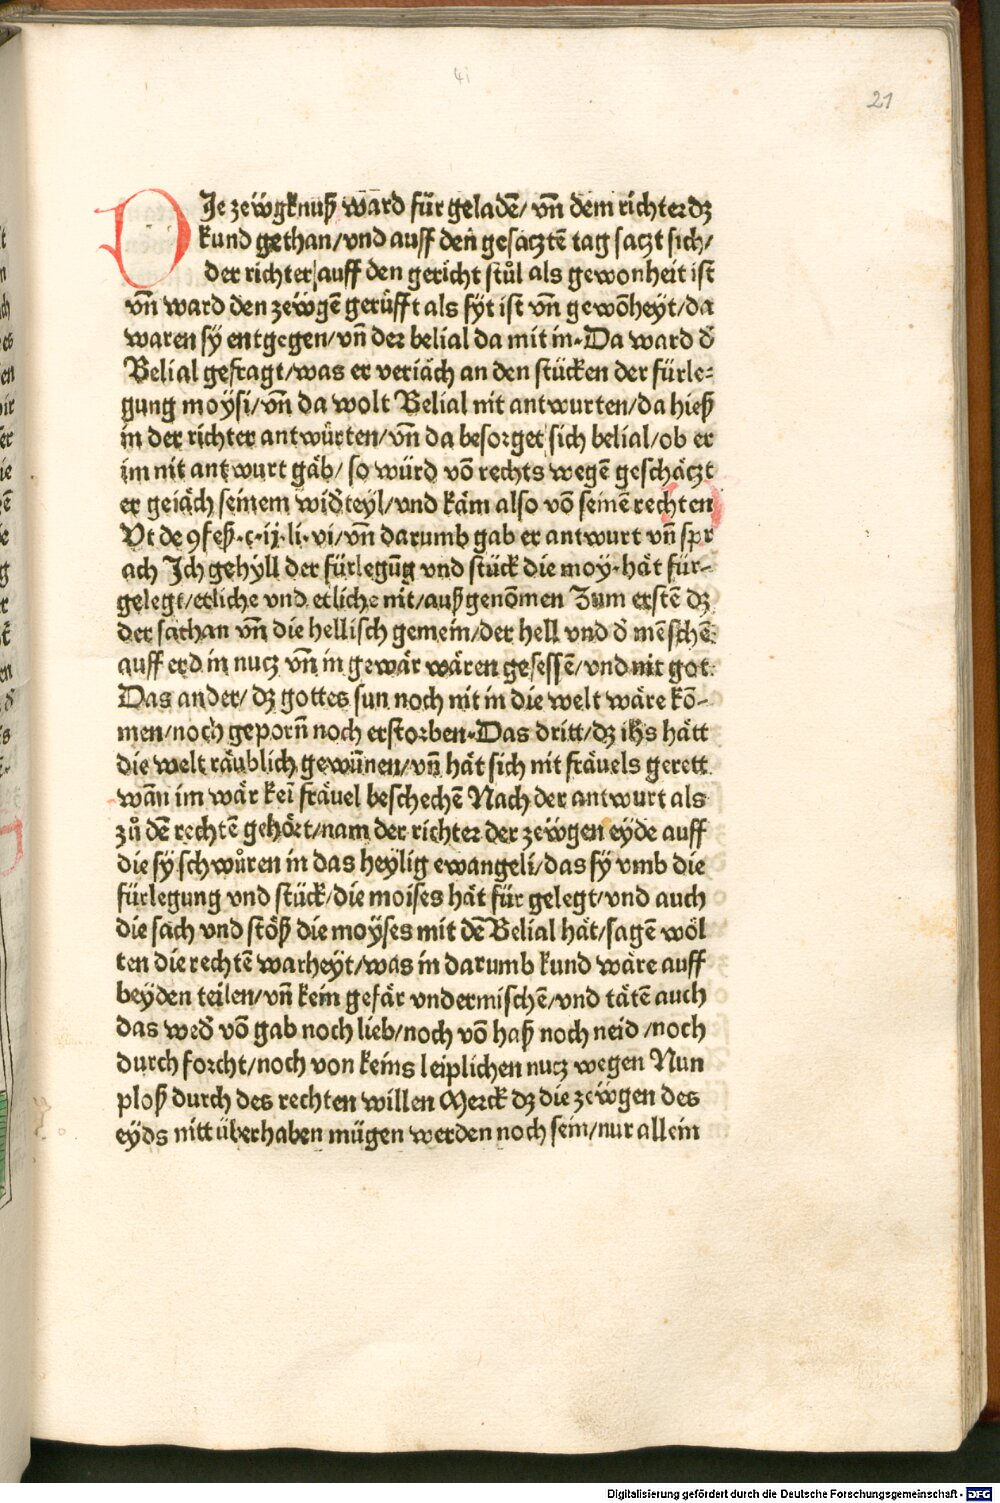 41
21
DJe zeẅgknuß ward für geladē/ vn̄ dem richter dz
kund gethan/vnd auff den gesaczte tag saczt sich/
der richter/auff den gericht stůl als gewonheit ist
vn̄ ward den zeẅgē gerůfft als syt ist vn̄ gewōheyt/da
waren sÿ entgegen/vn̄ der belial da mit in·Da ward d̄
Belial gefragt/was er veriäch an den stücken der fürle⸗
gung moÿsi/vn̄ da wolt Belial nit antwurten/da hieß
in der richter antwürten/vn̄ da besorget sich belial/ob er
im nit antwurt gäb/ so würd vō rechts wegē geschäczt
er geiäch seinem wid̄teyl/vnd käm also vō seinē rechten
Vt de ꝯfeß·c·ij·li·vi/vn̄ darumb gab er antwurt vn̄ spr
ach Jch gehyll der fürlegūg vnd stück die moy·hät für⸗
gelegt/etliche vnd etliche nit/außgenōmen Zum erstē dz
der sathan vn̄ die hellisch gemein/der hell vnd d̄ mēschē
auff erd in nucz vn̄ in gewär wären gesessē/vnd nit got
Das ander/ dz gottes sun noch nit in die welt wäre kō⸗
men/noch geporn̄ noch erstorben·Das dritt/dz ihs hätt
die welt räublich gewūnen/vn̄ hät sich nit fräuels gerett
wān im wär kei fräuel beschechē Nach der antwurt als
zů dē rechtē gehört/nam der richter der zeẅgen eyde auff
die sÿ schwůren in das heÿlig ewangeli/das sÿ vmb die
fürlegung vnd stück/die moises hät für gelegt/vnd auch
die sach vnd stöß die moÿses mit dē Belial hät/sagē wöl
ten die rechtē warheÿt/was in darumb kund wäre auff
beÿden teilen/vn̄ kein gefär vndermischē/vnd tätē auch
das wed̄ vō gab noch lieb/noch vō haß noch neid /noch
durch forcht/noch von keins leiplichen nucz wegen Nun
ploß durch des rechten willen Merck dz die zeẅgen des
eÿds nitt überhaben mügen werden noch sein/nur allein
Digitalisierung gefördert durch die Deutsche Forschungsgemeinschaft - DFG